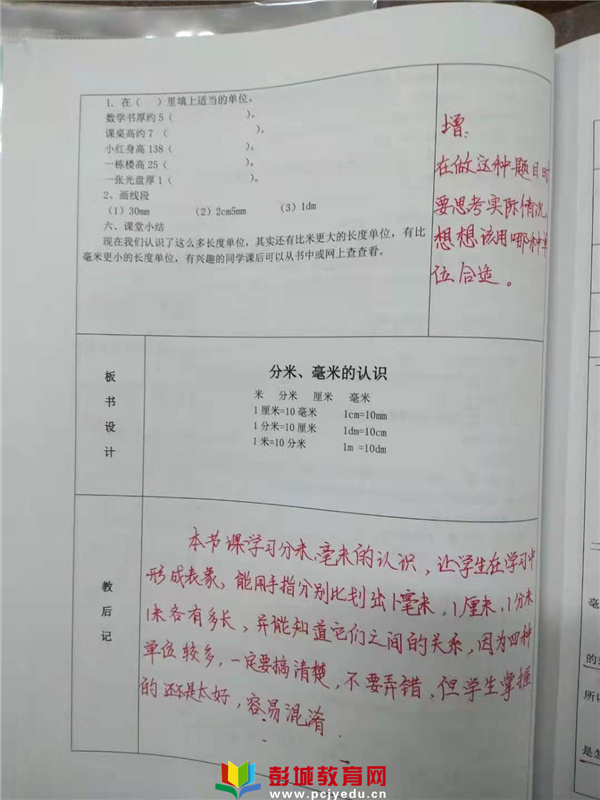 1. 在（ ）里填上适当的单位。
数学书厚约 5（ ）。
课桌高约 7 （ ）。
小红身高 138（ ）。
一栋楼高 25（ ）。
一张光盘厚 1（ ）。
2、画线段
（1）30mm （2）2cm5mm （3）1dm
六、课堂小结
现在我们认识了这么多长度单位，其实还有比米更大的长度单位，有比
毫米更小的长度单位，有兴趣的同学课后可以从书中或网上查查看。
增：
在做这种题目时
要思考实际情况
想想该用哪种单
位合适。
板书设计
分米、毫米的认识
米 分米 厘米 毫米
1 厘米=10 毫米 1cm=10mm
1 分米=10 厘米 1dm=10cm
1 米=10 分米 1m =10dm
教后记
本节课学习分米、毫米的认识，让学生在学习中
形成表象，能用手指分别比划出1毫米，1厘米，1分米
1米各有多长，并能知道它们之间的关系，因为四种
单位较多，一定要搞清楚，不要弄错，但学生掌握
的还是太好，容易混淆
毫
的
所以
是怎
彭城教育网
www.pcjyedu.cn